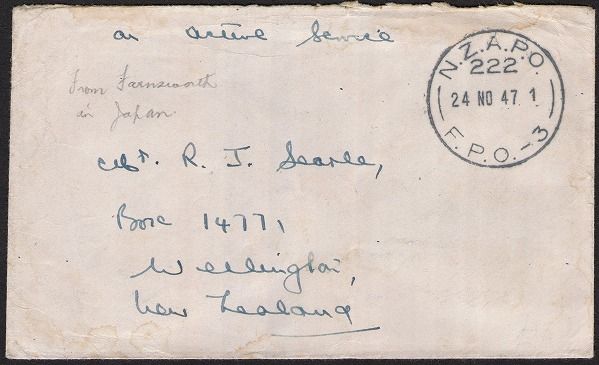 on active Service
N.Z.A.P.O.
222
24 NO 47 1
F.P.O.-3
From Farnsworth
in Japan.
Capt. R. J. Searle,
Box 14771
Wellington,
New Zealand